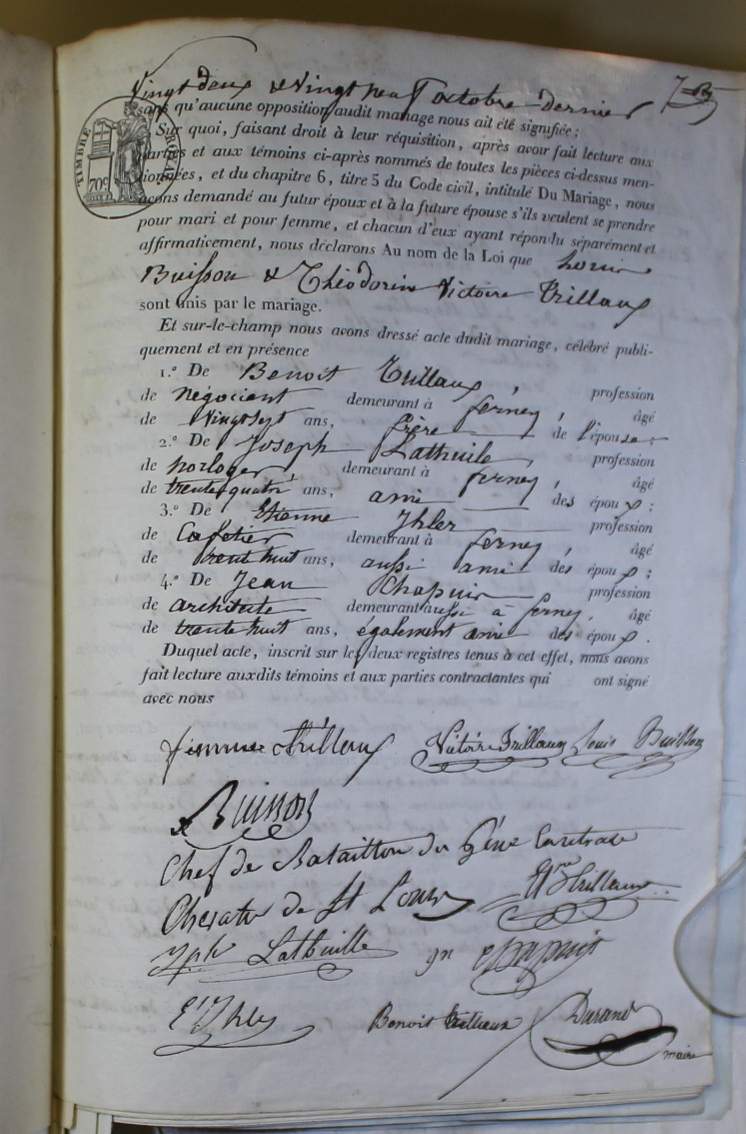 Vingt deux & Vingt neuf octobre Dernier
sans qu'aucune opposition audit mariage nous ait été signifiée;
TIMBRE ROYAL
70c
Sur quoi, faisant droit à leur réquisition, après avoir fait lecture aux
parties et aux témoins ci-après nommés de toutes les pièces ci-dessus men-
tionnées, et du chapitre 6, titre 5 du Code civil, intitulé Du Mariage, nous
avons demandé au futur époux et à la future épouse s'ils veulent se prendre
pour mari et pour femme, et chacun d'eux ayant répondu séparément et
affirmativement, nous déclarons Au nom de la Loi que Louis
Buisson & Théodorine Victoire Trilleaux
sont unis par le mariage.
Et sur-le-champ nous avons dressé acte dudit mariage, célébré publi-
quement et en présence
1.º De Benoit Trilleaux, profession
de Négociant demeurant à ferney, âgé
de Vingt sept ans, frère de l'épouse;
2.º De Joseph Lathuile profession
de horloger demeurant à ferney, âgé
de trente quatre ans, ami des époux;
3.º De Etienne Ihler profession
de Cafetier demeurant à ferney, âgé
de trente huit ans, aussi ami des époux;
4.º De Jean Chapuis profession
de architecte demeurant aussi à ferney, âgé
de trente huit ans, également ami des époux.
Duquel acte, inscrit sur les deux registres tenus à cet effet, nous avons
fait lecture auxdits témoins et aux parties contractantes qui ont signé
avec nous
Trilleaux Victoire Trilleaux Louis Buisson
Buisson
Chef de Bataillon du Génie en retraite
de St Louis Trilleaux
Jph Lathuille Chapuis
E. Ihler Benoit Trilleaux Durand
maire